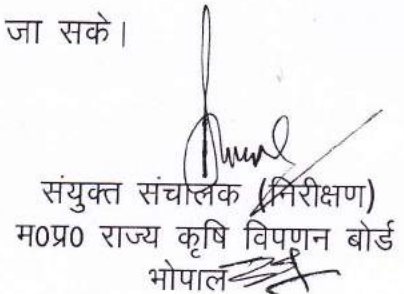 जा सके।
संयुक्त संचालक (निरीक्षण)
म0प्र0 राज्य कृषि विपणन बोर्ड
भोपाल